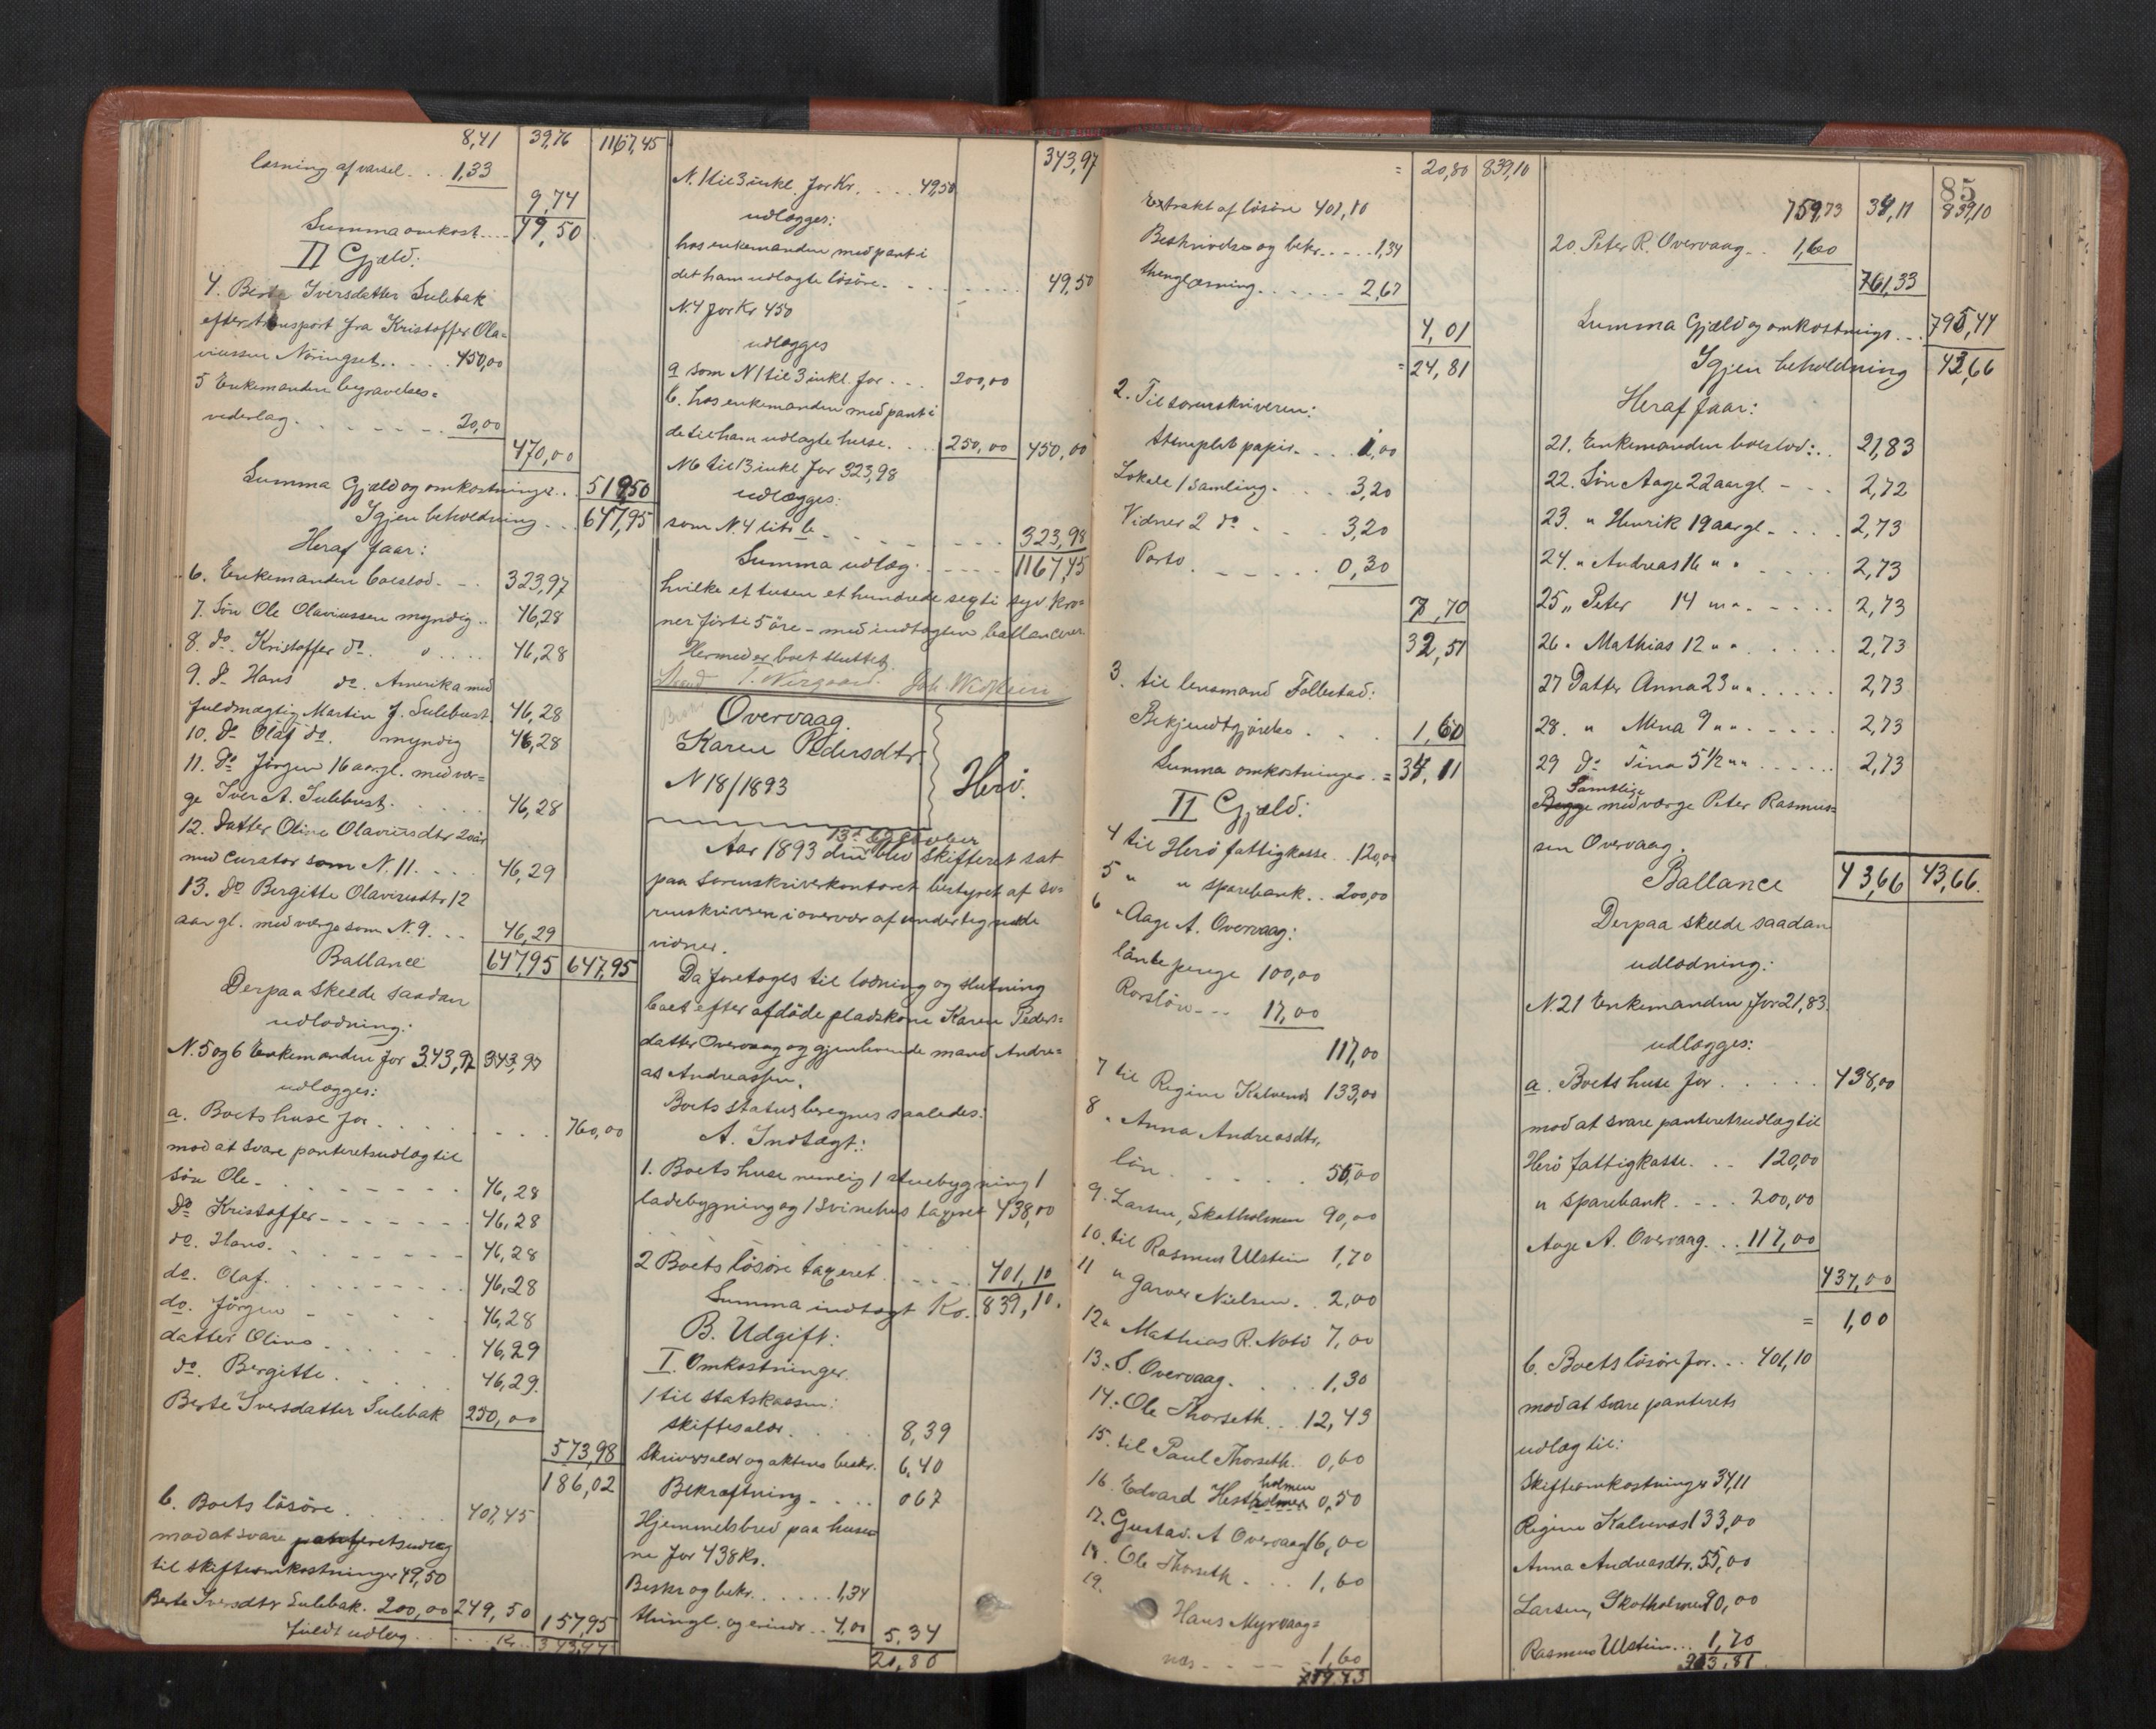 8,41 39,76 1167,45
læsning af varsel . . 1,33
9,74
Summa omkost . . . 49,50
II Gjæld:
4. Berte Iversdatter Sulebak
efter transport fra Kristoffer Ola=
viussen Nöringset . . . . 450,00
5 Enkemanden begravelses=
vederlag . . . . . . . 20,00
470,00
Summa Gjæld og omkostninger . . 519,50
Igjen beholdning . . . 647,95
Heraf faar:
6. Enkemanden boeslod . . . 323,97
7. Sön Ole Olaviussen myndig . . 46,28
8. do. Kristoffer do. " . . . . 46,28
9. do Hans do. Amerika med
fuldmægtig Martin J. Sulebust. 46,28
10. do Olaf do. myndig 46,28
11. Do Jörgen 16 aar gl. med vær=
ge Iver A. Sulebust . . . . . 46,28
12. Datter Oline Olaviusdtr 20 år
med curator som N. 11 . . . . 46,29
13. Do Bergitte Olaviusdtr 12
aar gl. med værge som N. 9. . . 46,29
Ballance 647,95 647,95
Derpaa skeede saadan
udlodning:
N. 5 og 6 Enkemanden for 343,97 343,97
udlægges:
a. Boets huse for . . . . . . . . 760,00
mod at svare panteretsudlæg til
sön Ole . . . . . . . . 46,28
Do Kristoffer . . . . . . . 46,28
do. Hans . . . . . . . . 46,28
do. Olaf . . . . . . . . 46,28
do. Jörgen . . . . . . . 46,28
datter Oline . . . . . . 46,29
do. Bergitte . . . . . . 46,29
Berte Iversdatter Sulebak 250,00
573,98
186,02
b. Boets lösöre . . . . . . 407,45
mod at svare panteretsudlæg
til skifteomkostninger 49,50
Berte Iversdtr Sulebak. 200,00 249,50
157,95
fuldt udlæg . . . . Kr. 343,97
343,97
N. 1 til 3 inkl. for Kr. . . . . 49,50
udlægges:
hos enkemanden med pant i
det ham udlagte lösöre . . . . . . . . 49,50
N. 4 for Kr 450
udlægges
a som N 1 til 3 inkl. for . . . 200,00
b. hos enkemanden med pant i
de til ham udlagte huse . . . 250,00 450,00
N 6 til 13 inkl for 323,98
udlægges:
som N. 4 litr b . . . . . . . . 323,98
Summa udlæg . . . . . 1167,45
hvilke et tusen et hundrede segti syv kro=
ner förti 5 öre - med indtægten ballancerer
Hermed er boet sluttet
Joh. Widsteen
Overvaag.
Karen Pedersdtr
N 18/1893
Herö.
13de
Aar 1893 den blev skifteret sat
paa sorenskriverkontoret bestyret af so=
renskriveren i overvær af undertegnede
vidner.
Da foretoges til lodning og slutning
boet efter afdöde pladskone Karen Peders=
datter Overvaag og gjenlevende mand Andre=
as Andreassen.
Boets status beregnes saaledes:
A. Indtægt:
1. Boets huse nemlig 1 stuebygning 1
ladebygning og 1 svinehus taxeret 438,00
2 Boets lösöre taxeret . . . . . . 401,10
Summa indtægt Kr. 839,10.
B. Udgift:
I. Omkostninger.
1 til statskassen:
skiftesalær . . . . . 8,39
Skriversalær og aktens beskr. 6,40
Bekræftning . . . . 0 67
Hjemmelsbrev paa huse=
ne for 438 Kr.
Beskr og bekr. . . . . . . 1,34
thingl. og erindr . . 4,00 5,34
20,80
= 20,80 839,10
Extrakt af lösöre 401,10
Beskrivelse og bekr. . . . . 1,34
thinglæsning . . . . . . 2,67
4,01
= 24,81
2. Til sorenskriveren:
Stemplet papir . . . . 1,00
Lokale 1 samling . . . . 3,20
Vidner 2 do . . . . 3,20
Porto . . . . . . . 0,30
7,70
32,51
3. til lensmand Follestad:
Bekjendtgjörelse . . . 1,60
Summa omkostninger = 34,11
II Gjæld:
4 til Herö fattigkasse . . 120,00
5 " " sparebank . . 200,00
6 " Aage A. Overvaag:
lånte penge 100,00
Rorslön . . . 17,00
117,00
7 til Regine Kalvenes 133,00
8 " Anna Andreasdtr.
lön . . . . . . . 55,00
9. Larsen, Skotholmen 90,00
10. til Rasmus Ulstein 1,70
11 " garver Nielsen . . 2,00
12 " Mathias R. Notö 7,00
13. S. Overvaag . . . . 1,30
14. Ole Thorseth . . 12,43
15. til Paul Thorseth . 0,60
holmen
16. Edvard Hestholmen 0,50
17. Gustav. A Overvaag 16,00
18. Ole Thorseth . . . 1,60
19. Hans Myrvaag=
næs . . . . . . 1,60
759,73
85
759,73 34,11 839,10
20. Peter R. Overvaag . . 1,60
761,33
Summa Gjæld og omkostnings . . . 795,44
Igjen beholdning 43,66
Heraf faar:
21. Enkemanden boeslod: . . 21,83
22. Sön Aage 22 aar gl. - . . . 2,72
23. " Henrik 19 aar gl . . . . 2,73
24. " Andreas 16 " " . . . . . 2,73
25 " Peter 14 " " . . . . . 2,73
26 " Mathias 12 " " . . . . . 2,73
27 Datter Anna 23 " " . . . . . 2,73
28. " Mina 9 " " . . . . . 2,73
29 do Tina 5 1/2 " " . . . . . . 2,73
Samtlige
Begge med værge Peter Rasmus=
sen Overvaag.
Ballance 43,66 43,66.
Derpaa skeede saadan
udlodning:
N. 21 Enkemanden for 21,83.
udlægges:
a. Boets huse for . . . . . 438,00
mod at svare panteretsudlæg til
Herö fattigkasse . . . 120,00
" sparebank . . . . 200,00
Aage A. Overvaag . . . 117,00
437,00
= 1,00
b. Boets lösöre for . . . 401,10
mod at svare panterets
udlæg til:
Skifteomkostninger 34,11
Regine Kalvenes 133,00
Anna Andreasdtr. 55,00
Larsen, Skotholmen 90,00
Rasmus Ulstein . . . 1,70
313,81